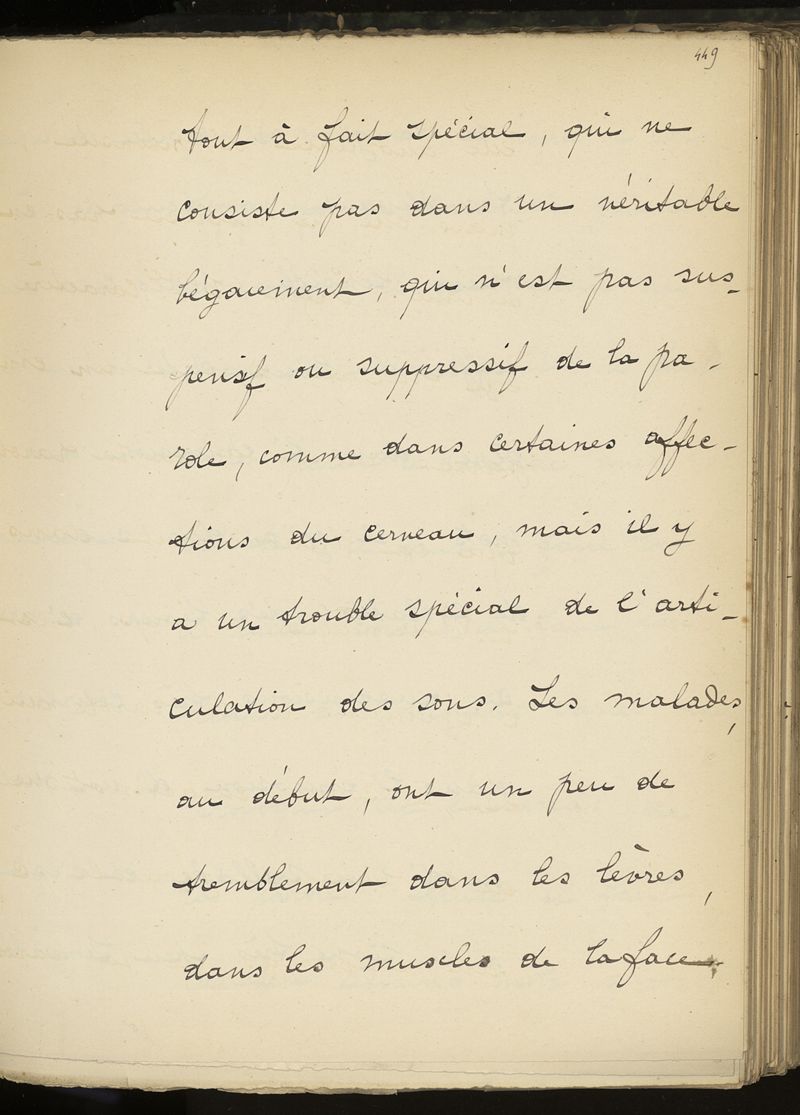 449
tout à fait spécial, qui ne
consiste pas dans un véritable
bégaiement, qui n'est pas sus-
pensif ou suppressif de la pa-
role, comme dans certaines affec-
tions du cerveau, mais il y
a un trouble spécial de l'arti-
culation des sons. Les malades,
au début, ont un peu de
tremblement dans les lèvres,
dans les muscles de la face